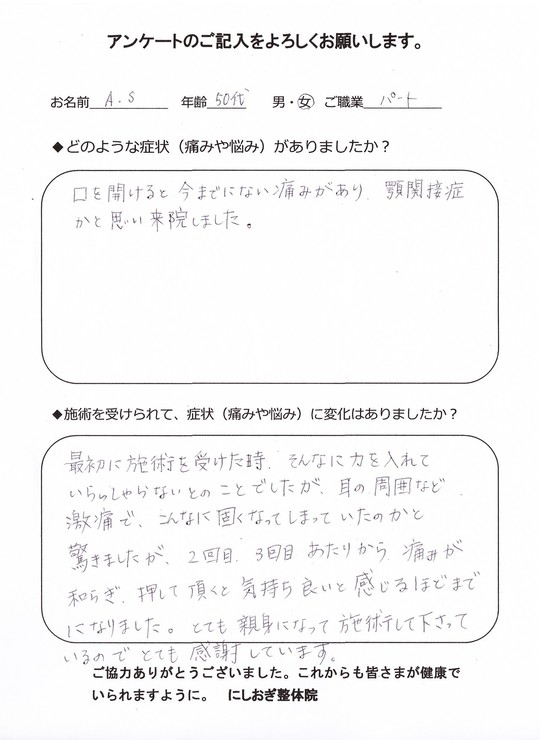 アンケートのご記入をよろしくお願いします。
お名前 A.S 年齢 50代 男・女 ご職業 パート
◆どのような症状（痛みや悩み）がありましたか？
口を開けると今までにない痛みがあり、顎関接症
かと思い来院しました。
◆施術を受けられて、症状（痛みや悩み）に変化はありましたか？
最初に施術を受けた時、そんなに力を入れて
いらっしゃらないとのことでしたが、耳の周囲など
激痛で、こんなに固くなってしまっていたのかと
驚きましたが、2回目、3回目あたりから、痛みが
和らぎ、押して頂くと気持ち良いと感じるほどまで
になりました。とても親身になって施術して下さって
いるのでとても感謝しています。
ご協力ありがとうございました。これからも皆さまが健康で
いられますように。 にしおぎ整体院